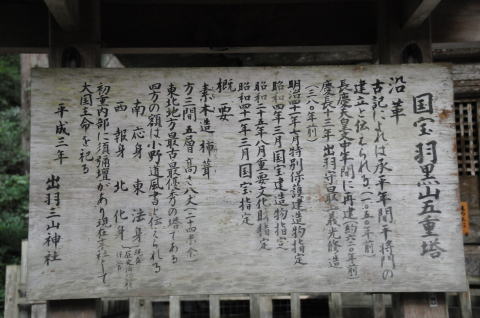 国宝羽黒山五重塔
沿革
古記によれば承平年間平将門の
建立と伝えられる（一〇五〇年前）
長慶天皇文中年間に再建（約六二〇年前）
慶長十三年出羽守最上義光修造
（三八〇年前）
明治四一年七月特別保護建造物指定
昭和四年三月国宝建造物指定
昭和二十五年八月重要文化財指定
昭和四十一年三月国宝指定
概要
素木造 柿葺
方三間五層高さ八丈（二十四米）
東北地方最古最優秀の塔である
四方の額は小野道風書と伝えられる
南 応身 東 法身
西 報身 北 化身
初重内部に須弥壇があり現在末社として
大国主命を祀る
平成三年 出羽三山神社